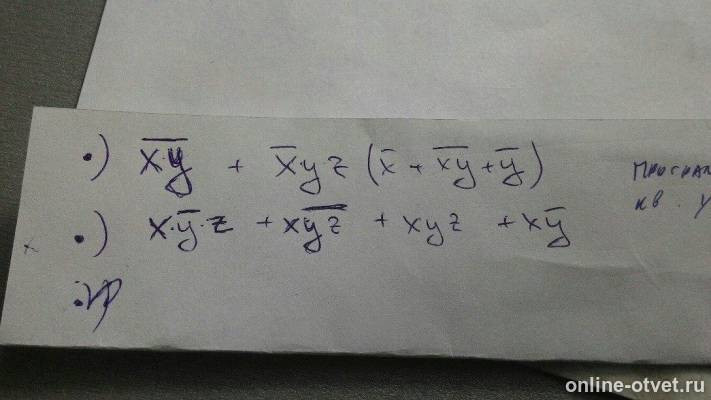 •) x̅·̅y̅ + x̅·yz (x̅ + x̅y̅ + y̅)
•) x·y̅·z + xy̅z̅ + xyz + xy̅
x
кв. у
online-otvet.ru